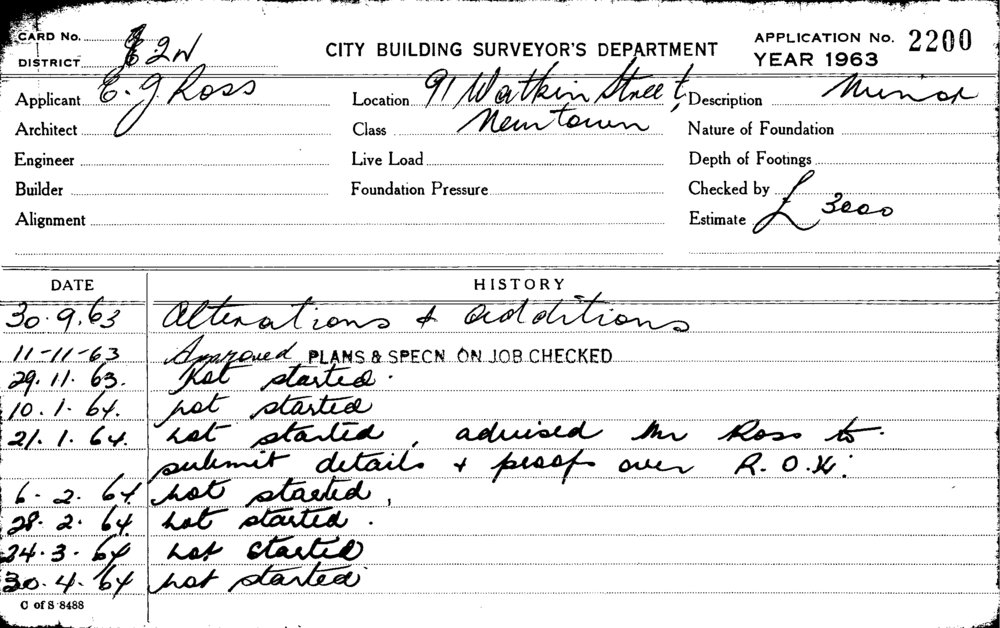 CARD No.
DISTRICT E 2W
CITY BUILDING SURVEYOR'S DEPARTMENT
APPLICATION No. 2200
YEAR 1963
Applicant E. J Ross Location 91 Watkin Street, Description Minor
Architect Class Newtown Nature of Foundation
Engineer Live Load Depth of Footings
Builder Foundation Pressure Checked by
Alignment Estimate £ 3000
DATE HISTORY
30.9.63 Alterations & additions
11-11-63 Approved PLANS & SPECN. ON JOB CHECKED
29.11.63. Not started.
10.1.64. not started
21.1.64. not started, advised Mr Ross to
submit details & proof over R.O.W.
6.2.64 not started,
28.2.64 not started.
24.3.64 not started
30.4.64 not started
C of S 8488